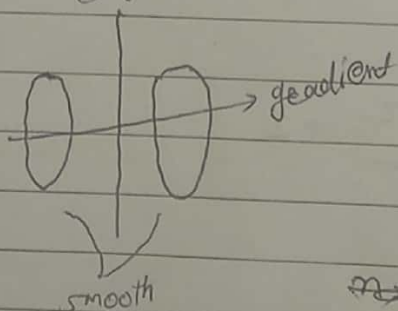 geadient
smooth